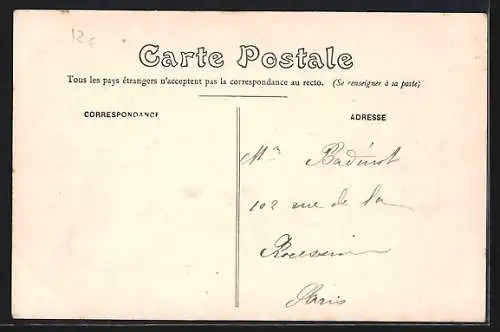 12€
Carte Postale
Tous les pays étrangers n'acceptent pas la correspondance au recto. (Se renseigner à sa poste)
CORRESPONDANCE
ADRESSE
102 rue de la
Paris